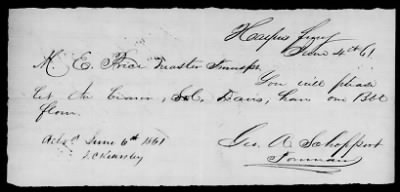 Harpers Ferry
June 4th 61
M. E. Price Master Transpt
You will please
let Mr have one Bbl
flour
Geo. A Schoppert
Foreman
Ack'd June 6th 1861